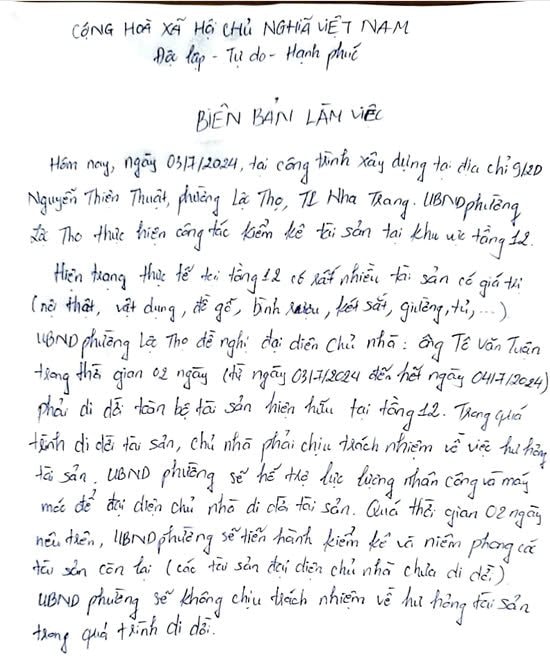 CỘNG HOÀ XÃ HỘI CHỦ NGHĨA VIỆT NAM
Độc lập - Tự do - Hạnh phúc
BIÊN BẢN LÀM VIỆC
Hôm nay, ngày 03/7/2024, tại công trình xây dựng tại địa chỉ 9/2D
Nguyễn Thiện Thuật, phường Lộc Thọ, TP Nha Trang. UBND phường
Lộc Thọ thực hiện công tác kiểm kê tài sản tại khu vực tầng 12.
Hiện trạng thực tế tại tầng 12 có rất nhiều tài sản có giá trị
(nội thất, vật dụng, đồ gỗ, bình rượu, két sắt, giường, tủ, ...)
UBND phường Lộc Thọ đề nghị đại diện chủ nhà: ông Tô Văn Tuân
trong thời gian 02 ngày (từ ngày 03/7/2024 đến hết ngày 04/7/2024)
phải di dời toàn bộ tài sản hiện hữu tại tầng 12. Trong quá
trình di dời tài sản, chủ nhà phải chịu trách nhiệm về việc hư hỏng
tài sản. UBND phường sẽ hỗ trợ lực lượng nhân công và máy
móc để đại diện chủ nhà di dời tài sản. Quá thời gian 02 ngày
nêu trên, UBND phường sẽ tiến hành kiểm kê và niêm phong các
tài sản còn lại (các tài sản đại diện chủ nhà chưa di dời)
UBND phường sẽ không chịu trách nhiệm về hư hỏng tài sản
trong quá trình di dời.